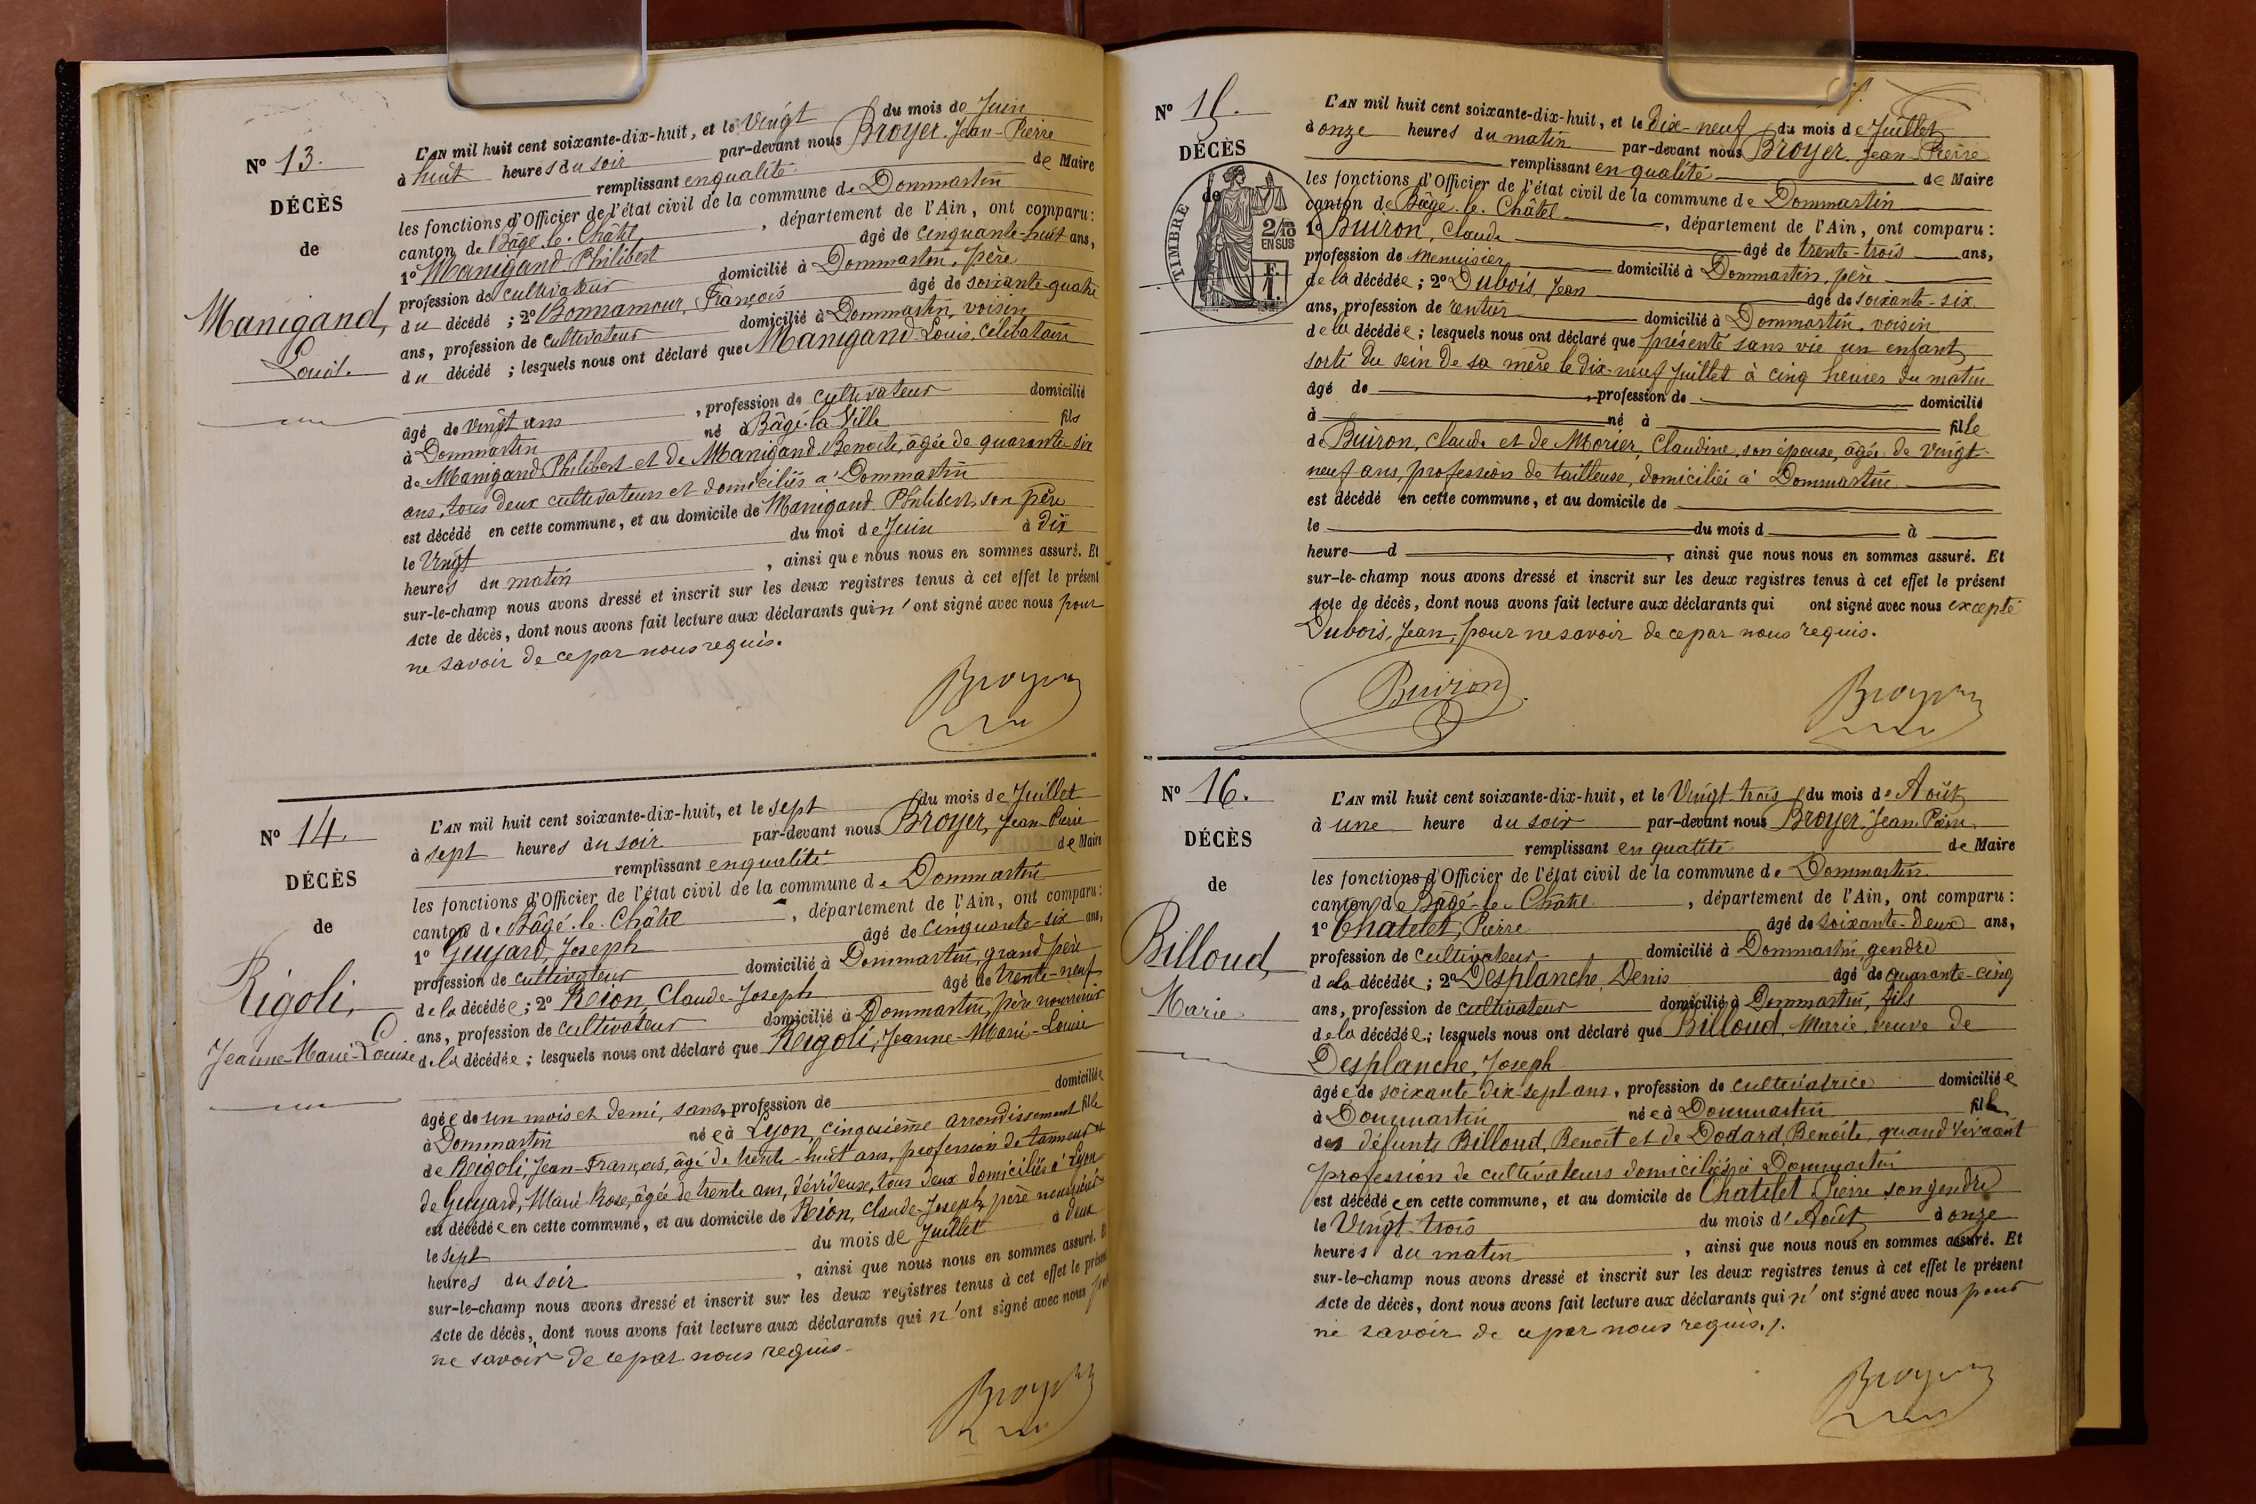 N° 13.
DÉCÈS
de
Manigand,
Louis.
L'AN mil huit cent soixante-dix-huit, et le Vingt du mois de Juin
à huit heures du soir par-devant nous Broyer Jean-Pierre
remplissant en qualité de Maire
les fonctions d'Officier de l'état civil de la commune de Dommartin
canton de Bâgé-le-Châtel, département de l'Ain, ont comparu :
1° Manigand Philibert âgé de cinquante-huit ans,
profession de cultivateur domicilié à Dommartin, père
du décédé ; 2° Bonnamour, François âgé de soixante-quatre
ans, profession de cultivateur domicilié à Dommartin, voisin
du décédé ; lesquels nous ont déclaré que Manigand Louis, célibataire
âgé de vingt ans, profession de cultivateur domicilié
à Dommartin né à Bâgé-la-Ville fils
de Manigand Philibert et de Manigand Benoite, âgée de quarante-six
ans, tous deux cultivateurs et domiciliés à Dommartin
est décédé en cette commune, et au domicile de Manigand Philibert, son père
le Vingt du moi de Juin à dix
heures du matin, ainsi que nous nous en sommes assuré. Et
sur-le-champ nous avons dressé et inscrit sur les deux registres tenus à cet effet le présent
Acte de décès, dont nous avons fait lecture aux déclarants qui n'ont signé avec nous pour
ne savoir de ce par nous requis.
Broyer
N° 14.
DÉCÈS
de
Rigoli,
Jeanne-Marie-Louise
L'AN mil huit cent soixante-dix-huit, et le sept du mois de Juillet
à sept heures du soir par-devant nous Broyer, Jean-Pierre
remplissant en qualité de Maire
les fonctions d'Officier de l'état civil de la commune de Dommartin
canton de Bâgé-le-Châtel, département de l'Ain, ont comparu :
1° Guyard, Joseph âgé de cinquante-six ans,
profession de cultivateur domicilié à Dommartin, grand père
de la décédée ; 2° Réion, Claude-Joseph âgé de trente-neuf
ans, profession de cultivateur domicilié à Dommartin, père nourricier
de la décédée ; lesquels nous ont déclaré que Reigoli, Jeanne-Marie-Louise
âgée de un mois et demi, sans profession de domiciliée
à Dommartin née à Lyon, cinquième arrondissement fille
de Reigoli, Jean-François, âgé de trente-huit ans, profession de tanneur et
de Guyard, Marie Rose, âgée de trente ans, dévideuse, tous deux domiciliés à Lyon
est décédée en cette commune, et au domicile de Réion, Claude-Joseph, père nourricier
le sept du mois de Juillet à deux
heures du soir, ainsi que nous nous en sommes assuré. Et
sur-le-champ nous avons dressé et inscrit sur les deux registres tenus à cet effet le présent
Acte de décès, dont nous avons fait lecture aux déclarants qui n'ont signé avec nous pour
ne savoir de ce par nous requis
Broyer
N° 15.
DÉCÈS
de
TIMBRE
2/10
EN SUS
L'AN mil huit cent soixante-dix-huit, et le dix-neuf du mois de Juillet
à onze heures du matin par-devant nous Broyer Jean-Pierre
remplissant en qualité de Maire
les fonctions d'Officier de l'état civil de la commune de Dommartin
canton de Bâgé-le-Châtel, département de l'Ain, ont comparu :
1° Buiron, Claude âgé de trente-trois ans,
profession de menuisier domicilié à Dommartin, père
de la décédée ; 2° Dubois, Jean âgé de soixante-six
ans, profession de rentier domicilié à Dommartin, voisin
de la décédée ; lesquels nous ont déclaré que présenté sans vie un enfant
sorti du sein de sa mère le dix-neuf Juillet à cinq heures du matin
âgé de, profession de domicilié
à né à fille
de Buiron, Claude et de Morier, Claudine, son épouse, âgée de vingt-
neuf ans, profession de tailleuse, domiciliée à Dommartin
est décédé en cette commune, et au domicile de
le du mois d à
heure d, ainsi que nous nous en sommes assuré. Et
sur-le-champ nous avons dressé et inscrit sur les deux registres tenus à cet effet le présent
Acte de décès, dont nous avons fait lecture aux déclarants qui ont signé avec nous excepté
Dubois, Jean, pour ne savoir de ce par nous requis.
Buiron
Broyer
N° 16.
DÉCÈS
de
Billoud
Marie
L'AN mil huit cent soixante-dix-huit, et le Vingt-trois du mois de Août
à une heure du soir par-devant nous Broyer Jean-Pierre
remplissant en qualité de Maire
les fonctions d'Officier de l'état civil de la commune de Dommartin
canton de Bâgé-le-Châtel, département de l'Ain, ont comparu :
1° Chatelet, Pierre âgé de soixante-deux ans,
profession de cultivateur domicilié à Dommartin, gendre
de la décédée ; 2° Desplanche, Denis âgé de quarante-cinq
ans, profession de cultivateur domicilié à Dommartin, fils
de la décédée ; lesquels nous ont déclaré que Billoud, Marie, veuve de
Desplanche, Joseph
âgée de soixante dix-sept ans, profession de cultivatrice domiciliée
à Dommartin née à Dommartin fille
des défunts Billoud, Benoit et de Dodard, Benoite, quand vivaient
profession de cultivateurs domiciliés à Dommartin
est décédée en cette commune, et au domicile de Chatelet Pierre son gendre
le Vingt-trois du mois d'Août à onze
heures du matin, ainsi que nous nous en sommes assuré. Et
sur-le-champ nous avons dressé et inscrit sur les deux registres tenus à cet effet le présent
Acte de décès, dont nous avons fait lecture aux déclarants qui n'ont signé avec nous pour
ne savoir de ce par nous requis.
Broyer